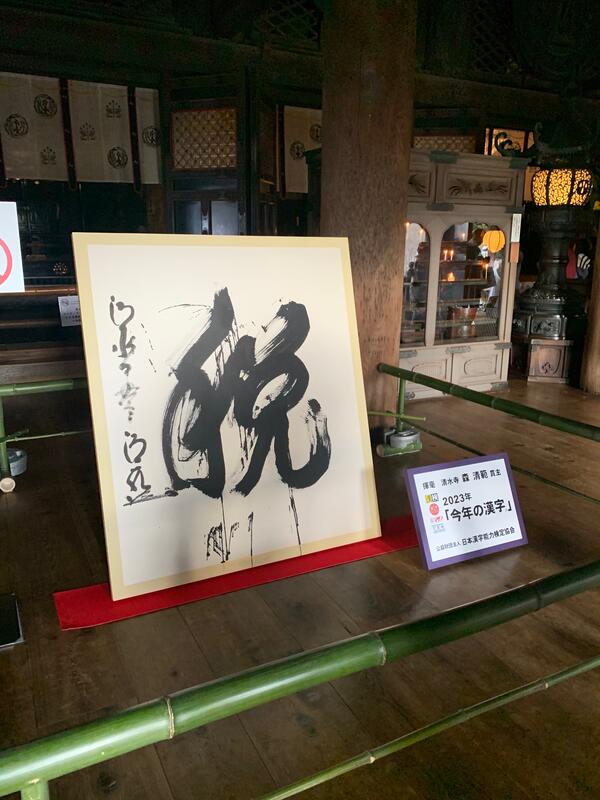 税
揮毫 清水寺 森 清範 貫主
2023年
「今年の漢字」
公益財団法人 日本漢字能力検定協会